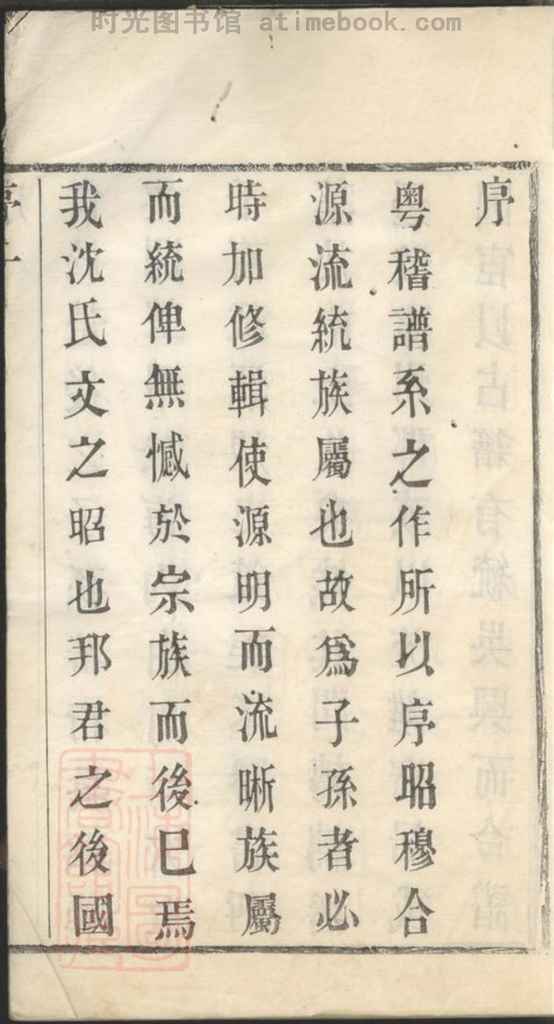 时光图书馆 atimebook.com
序
粤稽譜系之作所以序昭穆合
源流統族屬也故爲子孫者必
時加修輯使源明而流晰族屬
而統俾無憾於宗族而後已焉
我沈氏文之昭也邦君之後國